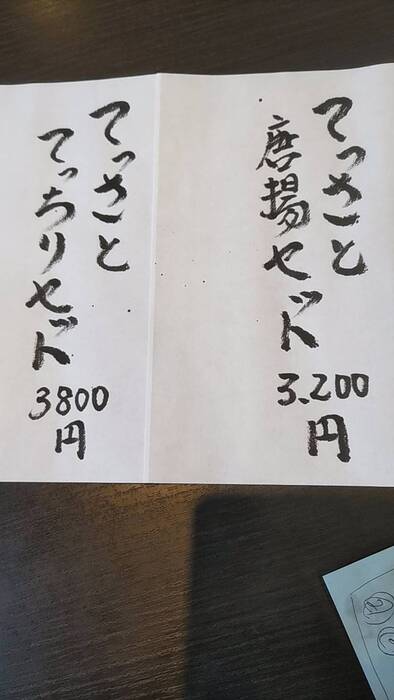 てっさと
唐揚セット
3.200
円
てっさと
てっちりセット
3800
円
②